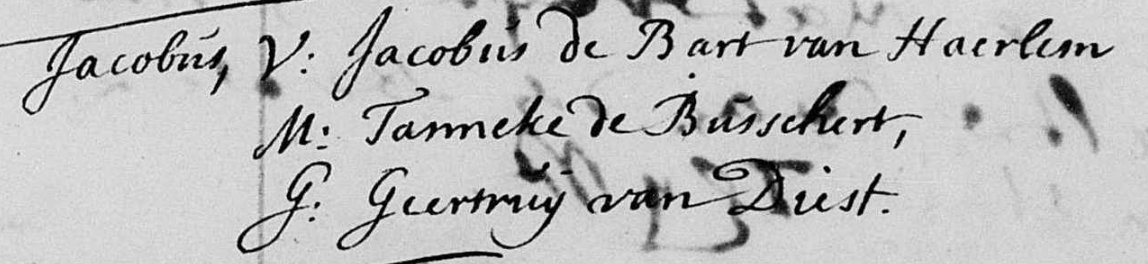 Jacobús, V: Jacobús de Bart van Haerlem
M: Tanneke de Bússchert,
G: Geertruij van Diest.